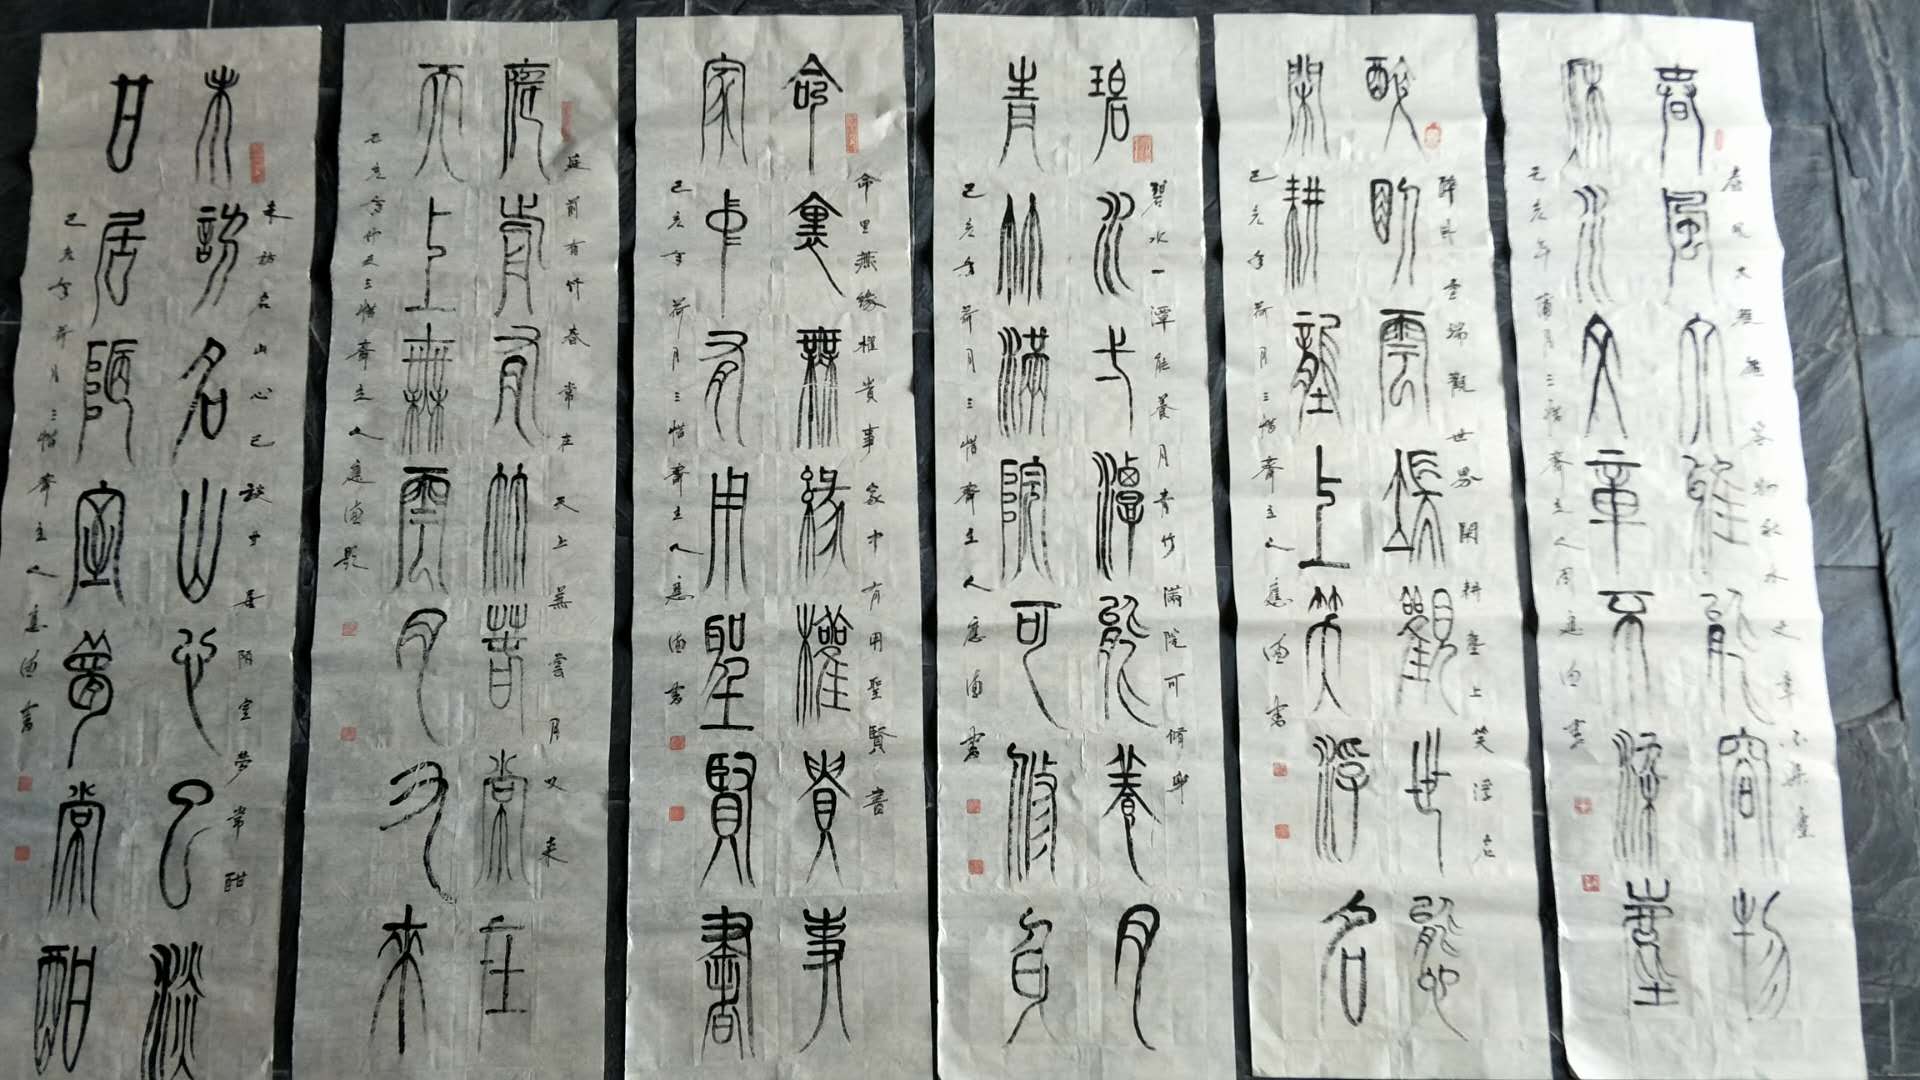 春風大雅能容物秋水文章不染塵
春風大雅能容物
秋水文章不染塵
己亥年蒲月三惜齋主人周應海書
醉卧雲端觀世界閑耕壟上笑浮名
醉臥雲端觀世態
閑耕壟上笑浮名
己亥年荷月三惜齋主人應海書
碧水一潭能養月青竹滿院可脩身
碧水潭能養月
青竹滿院可修身
己亥年荷月三惜齋主人應海書
命里無緣權貴事家中有用聖賢書
命裏無緣權貴事
家中有用聖賢書
己亥年荷月三惜齋主人應海書
庭前有竹春常在天上無雲月又来
庭前有竹春常在
天上無雲月又來
己亥年三惜齋主人應海題
未訪名山心已淡甘居陋室夢常酣
未訪名山心已淡
甘居陋室夢常酣
己亥年荷月三惜齋主人應海書